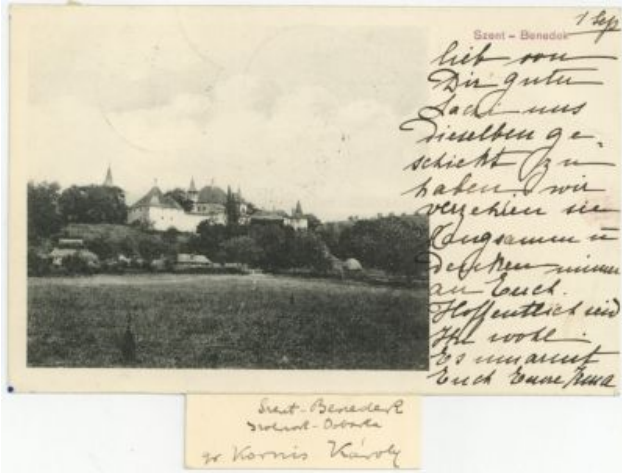 1 Sep
Szent – Benedek
lieb von
Dir guter
uns
dieselben ge-
schickt zu
haben. wir
verzehren sie
langsamm u
denken immer
an Euch.
Hoffentlich seid
Ihr wohl.
Es umarmt
Euch Eure
Szent-Benedek
Szolnok-Doboka
gr Kornis Károly